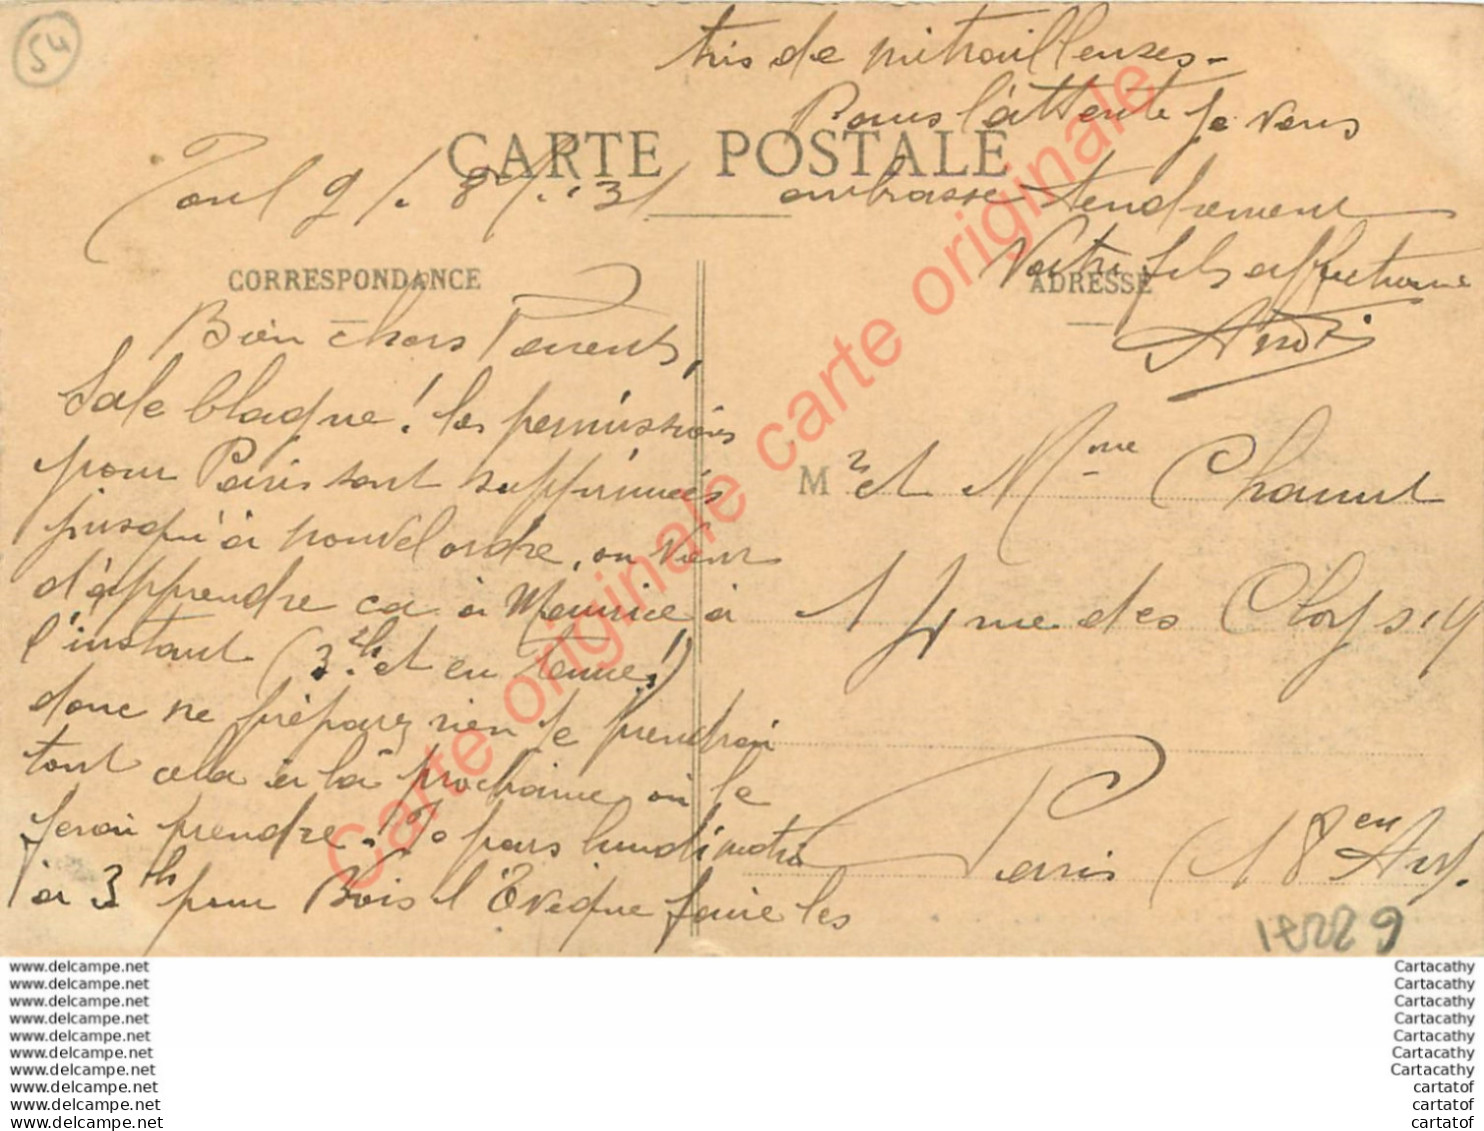 54
CARTE POSTALE
Toul 9/. 8/. 31
CORRESPONDANCE
Bien chers Parents,
Sale blague! les permissions
pour Paris sont supprimées
jusqu'à nouvel ordre, on vient
d'apprendre ça à Maurice à
l'instant (3h et en tenue!)
donc ne préparez rien je prendrai
tout cela à la prochaine où je
ferai prendre. Je pars lundi matin
à 3h pour Bois l'Evêque faire les
tris de mitrailleuses-
Dans l'attente je vous
embrasse tendrement
Votre fils affectionné
André
ADRESSE
Mr et Mme Chanut
rue des Cloys
Paris (18en Arr.
Carte originale carte originale carte originale
www.delcampe.net
www.delcampe.net
www.delcampe.net
www.delcampe.net
www.delcampe.net
www.delcampe.net
www.delcampe.net
www.delcampe.net
www.delcampe.net
www.delcampe.net
Cartacathy
Cartacathy
Cartacathy
Cartacathy
Cartacathy
Cartacathy
Cartacathy
cartatof
cartatof
cartatof